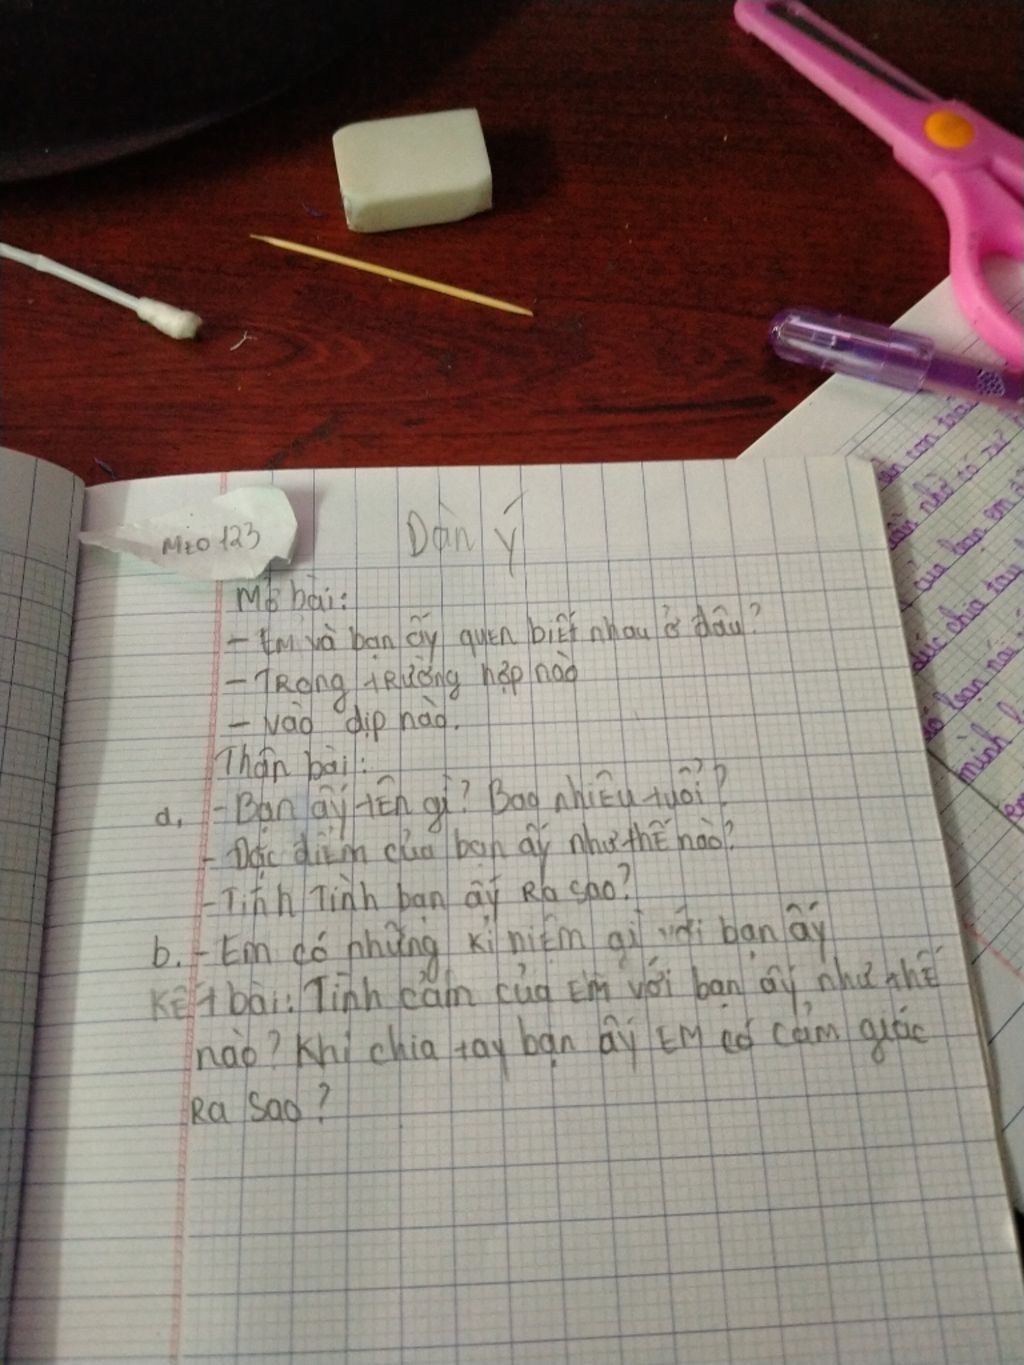 MEO 123
Dàn ý
Mở bài:
- Em và bạn ấy quen biết nhau ở đâu?
- TRong tRường hợp nào
- vào dịp nào.
Thân bài:
a, - Bạn ấy tên gì? Bao nhiêu tuổi?
- Đặc điểm của bạn ấy như thế nào?
- Tính Tình bạn ấy Ra sao?
b. - Em có những kỉ niệm gì với bạn ấy
Kết bài: Tình cảm của em với bạn ấy như thế
nào? Khi chia tay bạn ấy EM có cảm giác
Ra sao?
con
nhỏ có
của bạn em
chia tay
bạn nói
mình